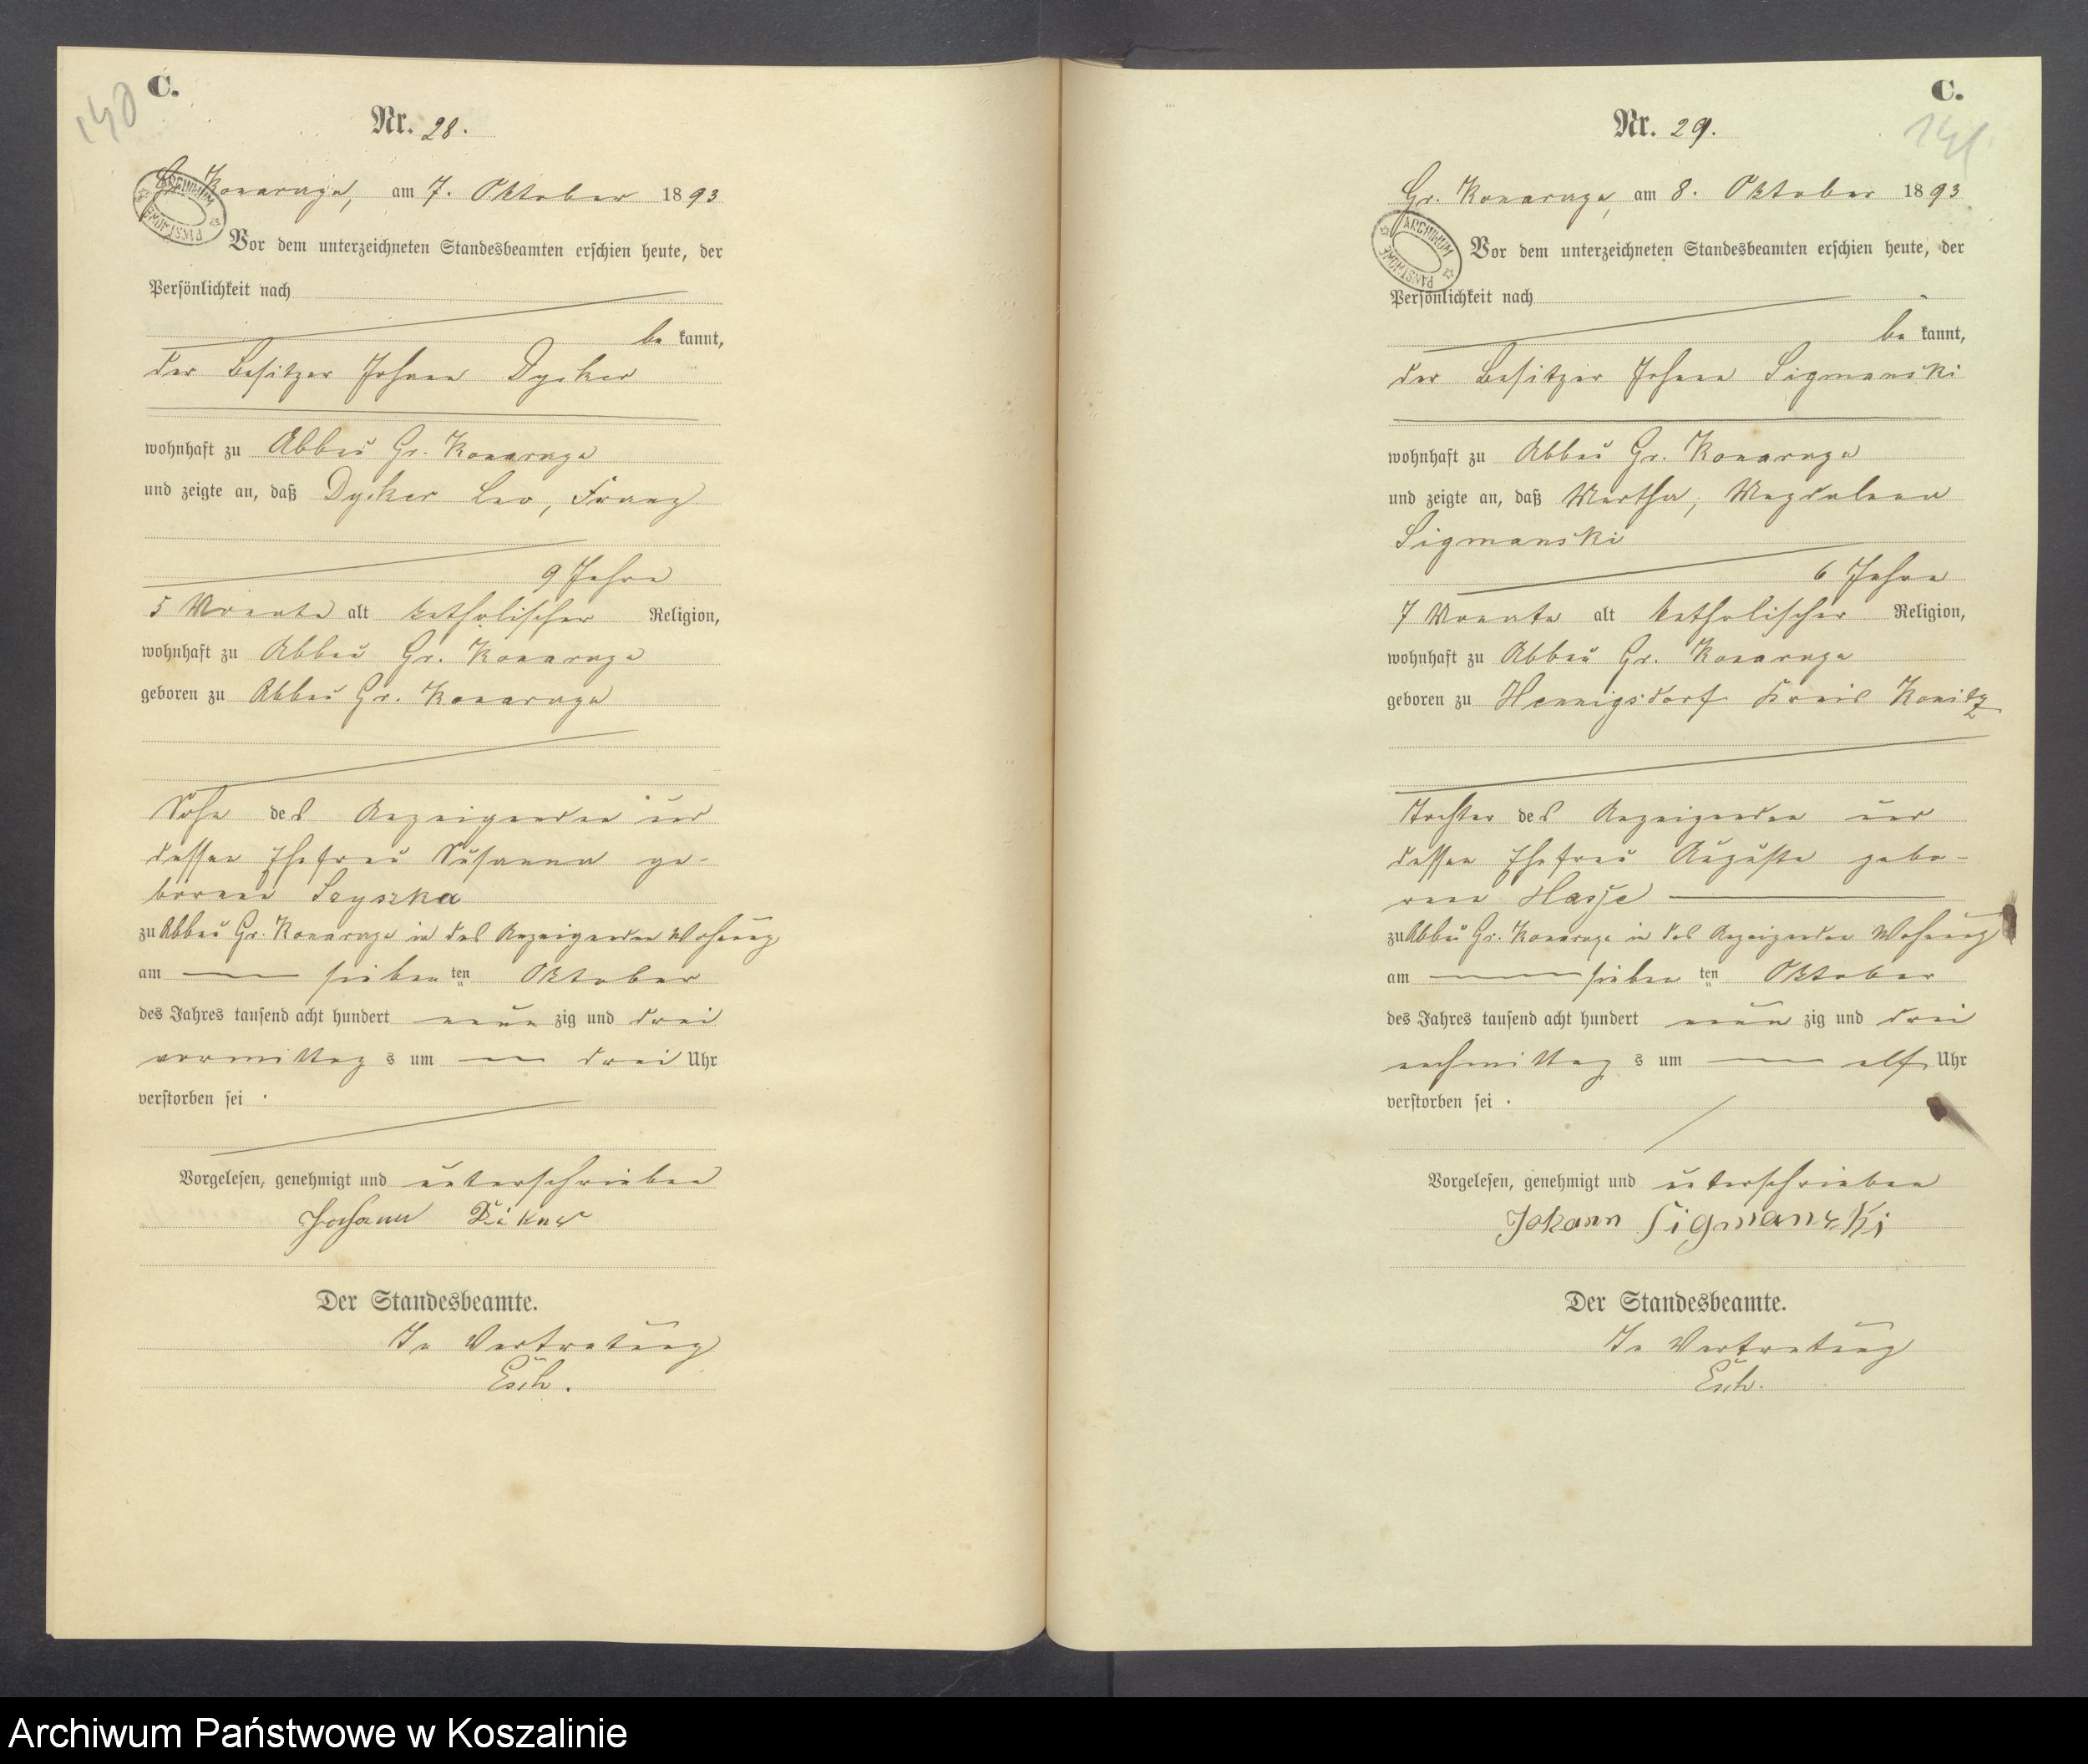 140
C.
Nr. 28.
Gr. Konarczyn, am 7. Oktober 1893
ARCHIWUM PAŃSTWOWE
Vor dem unterzeichneten Standesbeamten erschien heute, der
Persönlichkeit nach
be kannt,
der Besitzer Johann Dycker
wohnhaft zu Abbau Gr. Konarczyn
und zeigte an, daß Dycker Leo, Franz
9 Jahre
5 Monate alt katholischer Religion,
wohnhaft zu Abbau Gr. Konarczyn
geboren zu Abbau Gr. Konarczyn
Sohn des Anzeigenden und
dessen Ehefrau Susanna ge-
borene
zu Abbau Gr. Konarczyn in des Anzeigenden Wohnung
am sieben ten Oktober
des Jahres tausend acht hundert neun zig und drei
vormittag s um drei Uhr
verstorben sei .
Vorgelesen, genehmigt und unterschrieben
Johann
Der Standesbeamte.
In Vertretung
C.
141
Nr. 29.
Gr. Konarczyn, am 8. Oktober 1893
ARCHIWUM PAŃSTWOWE
Vor dem unterzeichneten Standesbeamten erschien heute, der
Persönlichkeit nach
be kannt,
der Besitzer Johann Sigmanski
wohnhaft zu Abbau Gr. Konarczyn
und zeigte an, daß Martha, Magdalena
Sigmanski
6 Jahre
7 Monate alt katholischer Religion,
wohnhaft zu Abbau Gr. Konarczyn
geboren zu Hennigsdorf Kreis Konitz
Tochter des Anzeigenden und
dessen Ehefrau Auguste gebo-
rene Hasse
zu Abbau Gr. Konarczyn in des Anzeigenden Wohnung
am sieben ten Oktober
des Jahres tausend acht hundert neun zig und drei
nachmittag s um elf Uhr
verstorben sei .
Vorgelesen, genehmigt und unterschrieben
Johann Sigmanski
Der Standesbeamte.
In Vertretung
Archiwum Państwowe w Koszalinie